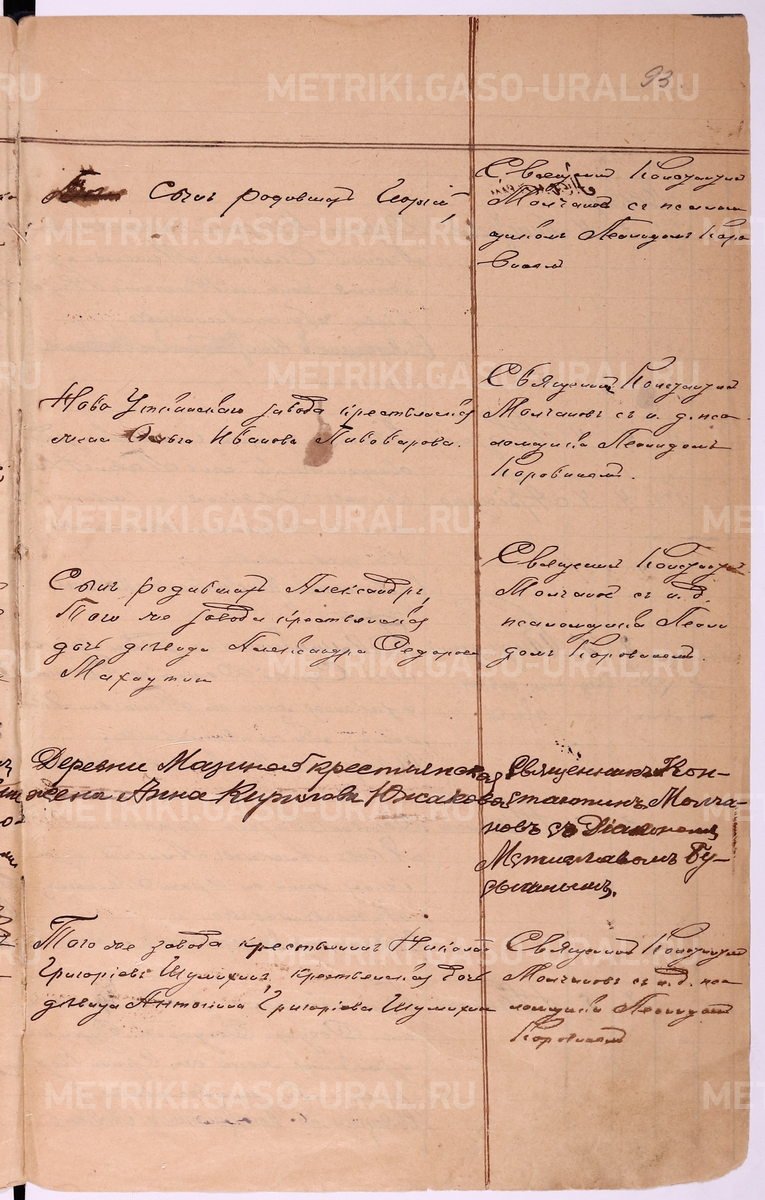 93.
Сынъ родившаго Георгій
Священникъ Константинъ
Молчановъ съ псалом
щикомъ Леонидомъ Коро
винымъ
Ново Уткинскаго завода крестьянская
жена Ольга Иванова Пивоварова.
Священникъ Константинъ
Молчановъ съ и. д. пса
ломщика Леонидомъ
Коровинымъ.
Сынъ родившаго Александръ,
Того же завода крестьянская
дочь дѣвица Александра Федорова
Священникъ Констант
Молчановъ съ и. д.
псаломщика Леони
домъ Коровинымъ.
Деревни Мазиной крестьянская
жена Анна Кирилова Южакова
Священникъ Кон-
стантинъ Молча-
новъ съ Діакономъ
Мстиславомъ Бу-
Того же завода крестьянинъ Николай
Григоріевъ Шумихинъ, крестьянская дочь
дѣвица Антонина Григоріева Шумихина
Священникъ Константинъ
Молчановъ съ и. д. пса
ломщика Леонидомъ
Коровинымъ
METRIKI.GASO-URAL.RU